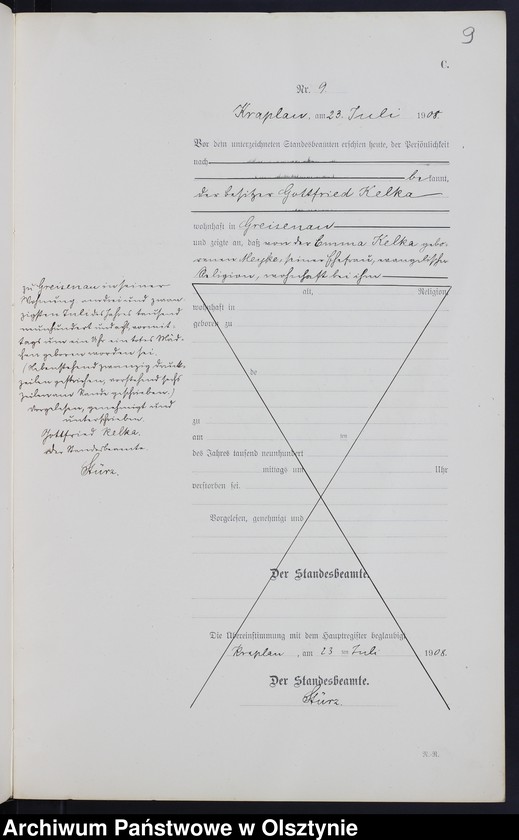 9
C.
Nr. 9.
Kraplau, am 23. Juli 1908.
Vor dem unterzeichneten Standesbeamten erschien heute, der Persönlichkeit
nach
bekannt,
der Besitzer Gottfried Kelka
wohnhaft in Greisenau
und zeigte an, daß von der Emma Kelka gebo-
renen Meyke, seiner Ehefrau, evangelischer
Religion, wohnhaft bei ihm
zu Greisenau in seiner
Wohnung am drei und zwan-
zigsten Juli des Jahres tausend
neunhundert und acht, vormit-
tags um ein Uhr ein totes Mäd-
chen geboren worden sei.
(Nebenstehend zwanzig Druck-
zeilen gestrichen, vorstehend sechs
Zeilen am Rande geschrieben.)
Vorgelesen, genehmigt und
unterschrieben
Gottfried Kelka.
Der Standesbeamte.
Stürz.
alt, Religion,
wohnhaft in
geboren zu
de
zu
am
des Jahres tausend neunhundert
mittags um Uhr
verstorben sei.
Vorgelesen, genehmigt und
Der Standesbeamte.
Die Übereinstimmung mit dem Hauptregister beglaubigt
Kraplau, am 23 ten Juli 1908.
Der Standesbeamte.
Stürz.
Archiwum Państwowe w Olsztynie